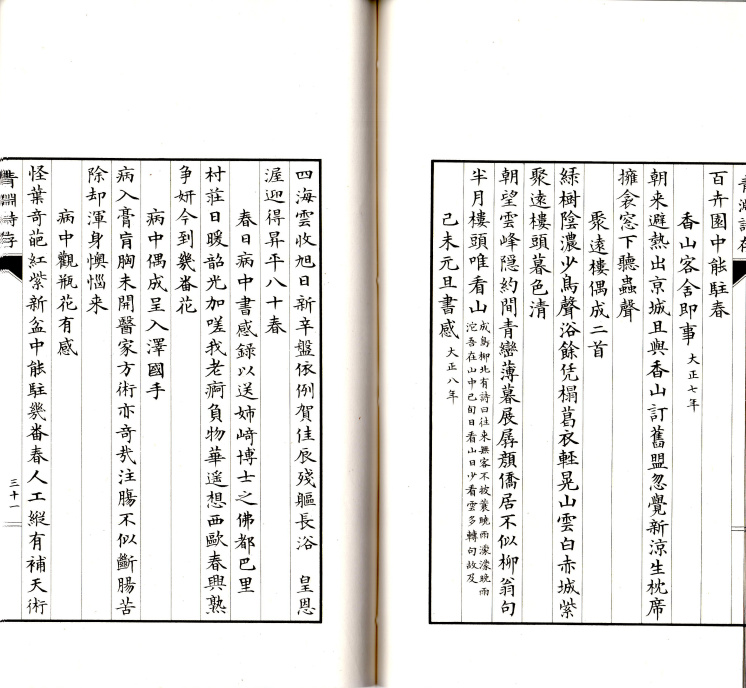 百卉園中能駐春
香山客舍即事 大正七年
朝来避熱出京城且與香山訂舊盟忽覺新涼生枕席
擁衾窓下聽蟲聲
聚遠樓偶成二首
綠樹陰濃少鳥聲浴餘凭榻葛衣輕晃山雲白赤城紫
聚遠樓頭暮色清
朝望雲峰隠約間青巒薄暮展孱顏僑居不似柳翁句
半月樓頭唯看山 成島柳北有詩曰往来無客不披蓑曉雨濛濛晚雨
沱吾在山中已旬日看山日少看雲多轉句故及
己未元旦書感 大正八年
四海雲收旭日新辛盤依例賀佳辰殘軀長浴 皇恩
渥迎得昇平八十春
春日病中書感錄以送姉﨑博士之佛都巴里
村莊日暖韶光加嗟我老痾負物華遥想西歐春興熟
争妍今到幾番花
病中偶成呈入澤國手
病入膏肓胸未開醫家方術亦奇哉注腸不似斷腸苦
除却渾身懊惱来
病中觀瓶花有感
怪葉奇葩紅紫新盆中能駐幾番春人工縱有補天術
青淵詩存
三十一